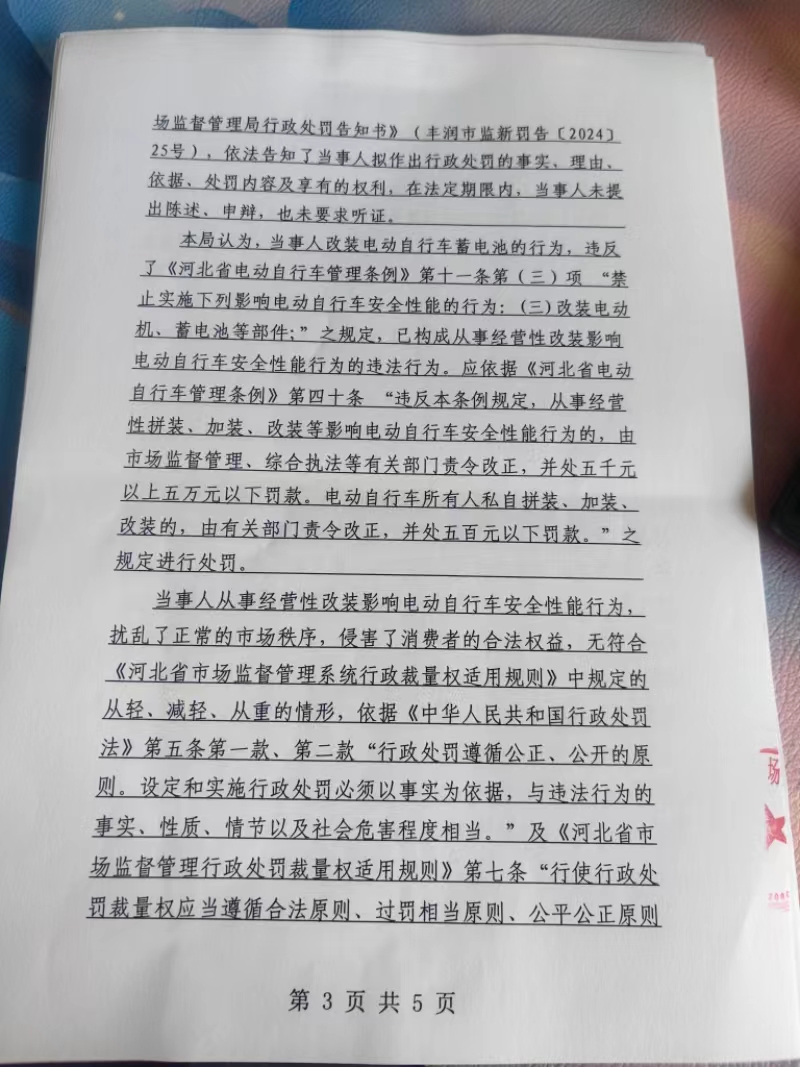 场监督管理局行政处罚告知书》（丰润市监新罚告〔2024〕
25号），依法告知了当事人拟作出行政处罚的事实、理由、
依据、处罚内容及享有的权利，在法定期限内，当事人未提
出陈述、申辩，也未要求听证。
本局认为，当事人改装电动自行车蓄电池的行为，违反
了《河北省电动自行车管理条例》第十一条第（三）项“禁
止实施下列影响电动自行车安全性能的行为：（三）改装电动
机、蓄电池等部件；”之规定，已构成从事经营性改装影响
电动自行车安全性能行为的违法行为。应依据《河北省电动
自行车管理条例》第四十条“违反本条例规定，从事经营
性拼装、加装、改装等影响电动自行车安全性能行为的，由
市场监督管理、综合执法等有关部门责令改正，并处五千元
以上五万元以下罚款。电动自行车所有人私自拼装、加装、
改装的，由有关部门责令改正，并处五百元以下罚款。”之
规定进行处罚。
当事人从事经营性改装影响电动自行车安全性能行为，
扰乱了正常的市场秩序，侵害了消费者的合法权益，无符合
《河北省市场监督管理系统行政裁量权适用规则》中规定的
从轻、减轻、从重的情形，依据《中华人民共和国行政处罚
法》第五条第一款、第二款“行政处罚遵循公正、公开的原
则。设定和实施行政处罚必须以事实为依据，与违法行为的
事实、性质、情节以及社会危害程度相当。”及《河北省市
场监督管理行政处罚裁量权适用规则》第七条“行使行政处
罚裁量权应当遵循合法原则、过罚相当原则、公平公正原则
场
第 3 页 共 5 页